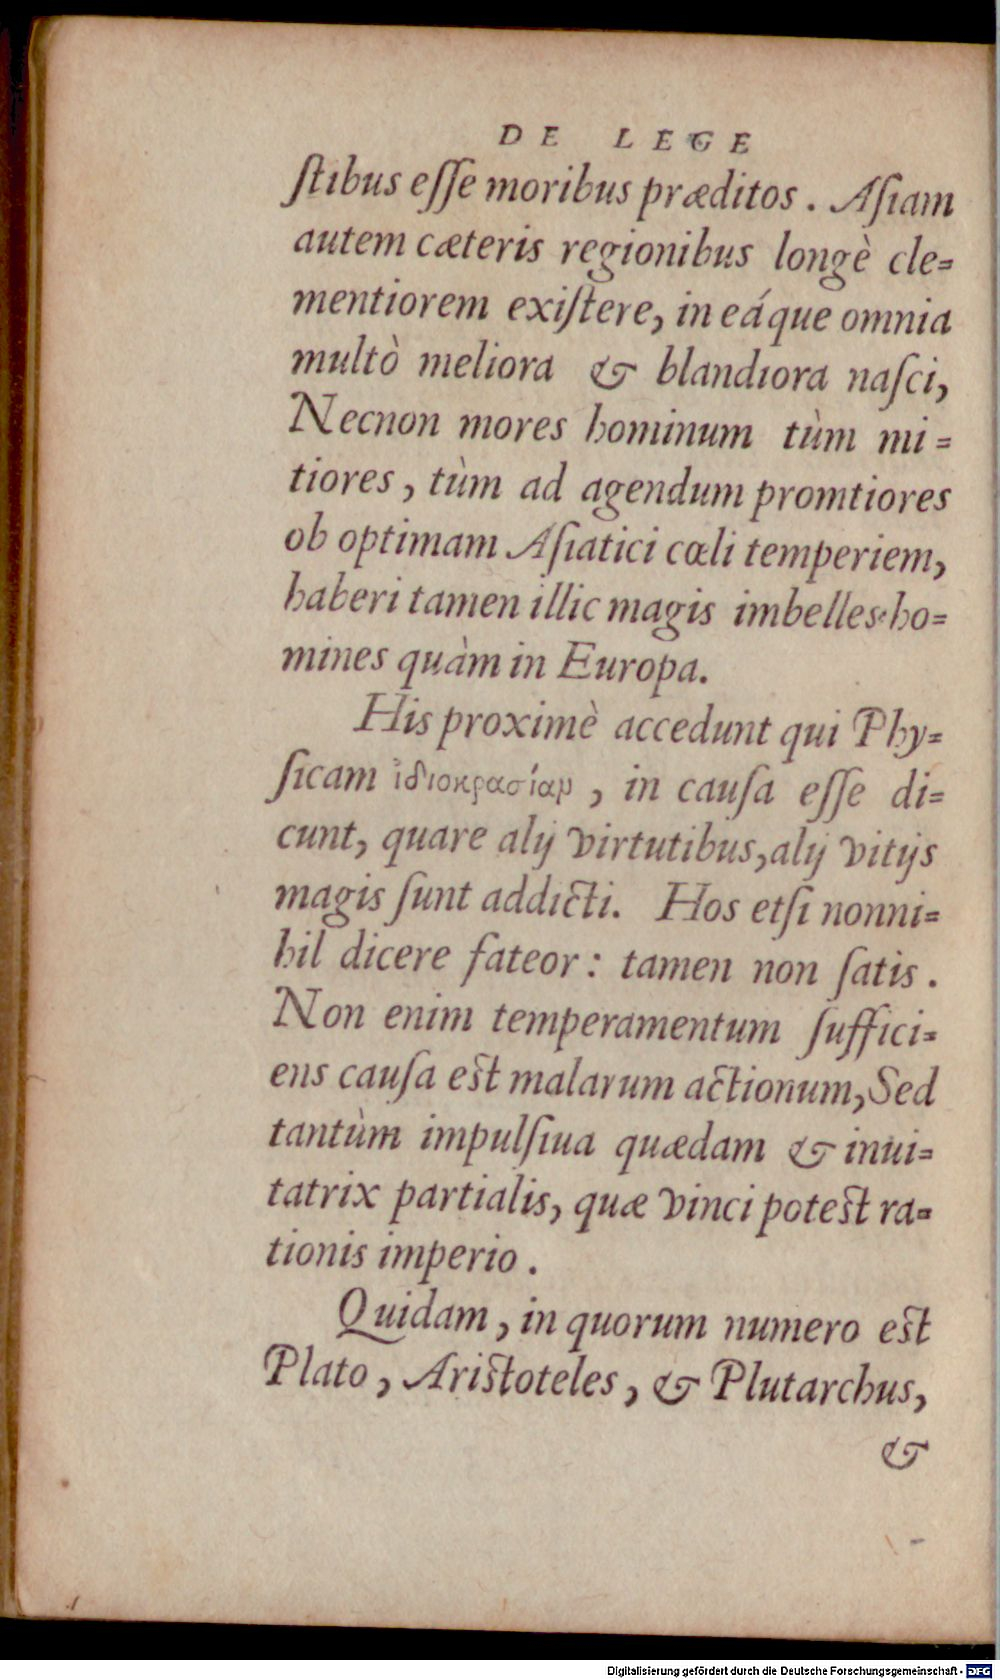 DE LEGE
ſtibus eſſe moribus præditos. Aſiam
autem cæteris regionibus longè cle=
mentiorem exiſtere, in eáque omnia
multò meliora & blandiora naſci,
Necnon mores hominum tùm mi=
tiores, tùm ad agendum promtiores
ob optimam Aſiatici cœli temperiem,
haberi tamen illic magis imbelles ho=
mines quàm in Europa.
His proximè accedunt qui Phy=
ſicam ἰδιοκρασίαν, in cauſa eſſe di=
cunt, quare alij virtutibus, alij vitijs
magis ſunt addicti. Hos etſi nonni=
hil dicere fateor: tamen non ſatis.
Non enim temperamentum ſuffici=
ens cauſa est malarum actionum, Sed
tantùm impulſiua quædam & inui=
tatrix partialis, quæ vinci potest ra=
tionis imperio.
Quidam, in quorum numero est
Plato, Aristoteles, & Plutarchus,
&
Digitalisierung gefördert durch die Deutsche Forschungsgemeinschaft - DFG